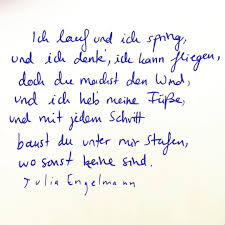 Ich lauf und ich spring,
und ich denk, ich kann fliegen,
doch du machst den Wind,
und ich heb' meine Füße,
und mit jedem Schritt
baust du unter mir Stufen,
wo sonst keine sind.
Julia Engelmann